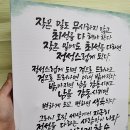 작은 일도 무시하지 않고
최선을 다해야 한다
작은 일에도 최선을 다하면
정성스럽게 된다
정성스럽게 되면 겉에 배어 나오고
겉으로 드러나면 이내 밝아지고
밝아지면 남을 감동시키고
남을 감동시키면
변하게 되고 변하면 생육된다
그러니 오직 세상에서 지극히
정성을 다하는 사람만이 나와